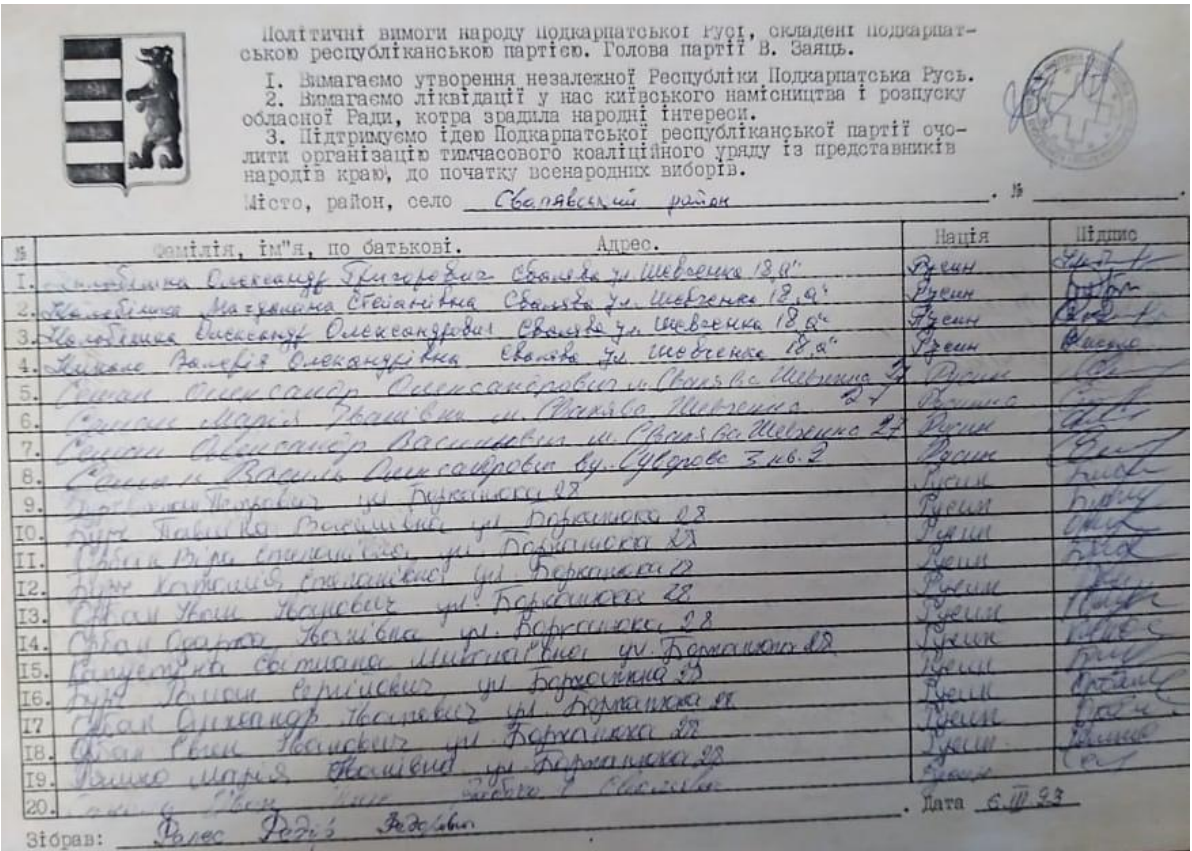 Політичні вимоги народу Подкарпатської Русі, складені подкарпат-
ською республіканською партією. Голова партії В. Заяць.
I. Вимагаємо утворення незалежної Республіки Подкарпатська Русь.
2. Вимагаємо ліквідації у нас київського намісництва і розпуску
обласної Ради, котра зрадила народні інтереси.
3. Підтримуємо ідею Подкарпатської республіканської партії очо-
лити організацію тимчасового коаліційного уряду із представників
народів краю, до початку всенародних виборів.
Місто, район, село Свалявський район . №
№ Фамілія, ім"я, по батькові. Адрес. Нація Підпис
I. Олександр Григорович Свалява ул. Шевченка 18 "а" Русин
2. Магдалина Степанівна Свалява ул. Шевченка 18 "а" Русин
3. Олександр Олександрович Свалява ул. Шевченка 18 "а" Русин
4. Валерія Олександрівна Свалява ул. Шевченка 18 "а" Русин
5. Семан Олександр Олександрович м. Свалява Шевченка 27 Русин
6. Семан Марія Іванівна м. Свалява Шевченка 27 Русинка
7. Семан Олександр Васильович м. Свалява Шевченка 27 Русин
8. Семан Василь Олександрович ву. Суворова 3 кв. 2 Русин
9. Петрович ул. Борканюка 28 Русин
IO. Бурч Павлина Василівна ул. Борканюка 28 Русин
II. Орбан Віра Степанівна ул. Борканюка 28 Русин
I2. Бурч Степанівна ул. Борканюка 28 Русин
I3. Орбан Іван Іванович ул. Борканюка 28 Русин
I4. Орбан Одарка Іванівна ул. Борканюка 28 Русин
I5. Капустяна Світлана Миколаївна ул. Борканюка 28 Русин
I6. Бурч Роман Сергійович ул. Борканюка 28 Русин
I7 Орбан Іванович ул. Борканюка 28 Русин
I8. Орбан Євген Іванович ул. Борканюка 28 Русин
I9. Марія Іванівна ул. Борканюка 28 Русин
20. Іван Свалява Русин
Зібрав: Фалес Федір Федорович . Дата 6.III 93